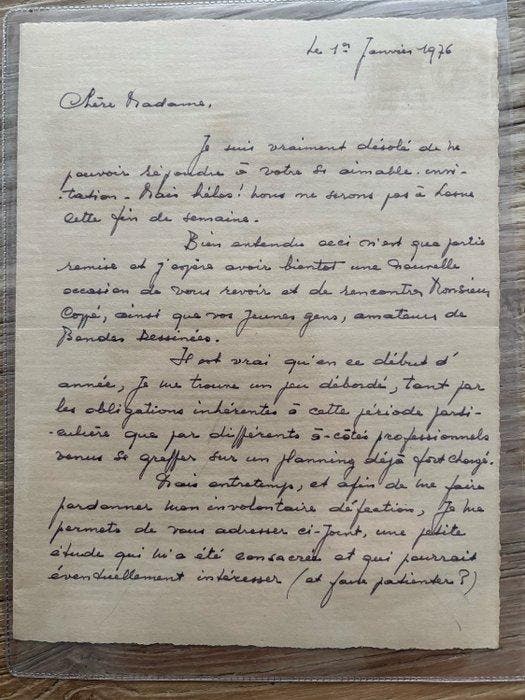 Le 1er Janvier 1976
Chère Madame,
Je suis vraiment désolé de ne
pouvoir répondre à votre si aimable invi-
-tation - Mais hélas! nous ne serons pas à Lasne
cette fin de semaine -
Bien entendu ceci n'est que partie
remise et j'espère avoir bientot une nouvelle
occasion de vous revoir et de rencontrer Monsieur
Coppé, ainsi que vos jeunes gens, amateurs de
Bandes Dessinées.
Il est vrai qu'en ce début d'
année, je me trouve un peu débordé, tant par
les obligations inhérentes à cette période parti-
-culière que par différents à-côtés professionnels
venus se greffer sur un planning déjà fort chargé.
Mais entretemps, et afin de me faire
pardonner mon involontaire défection, je me
permets de vous adresser ci-joint, une petite
étude qui m'a été consacrée et qui pourrait
éventuellement intéresser (et faire patienter?)